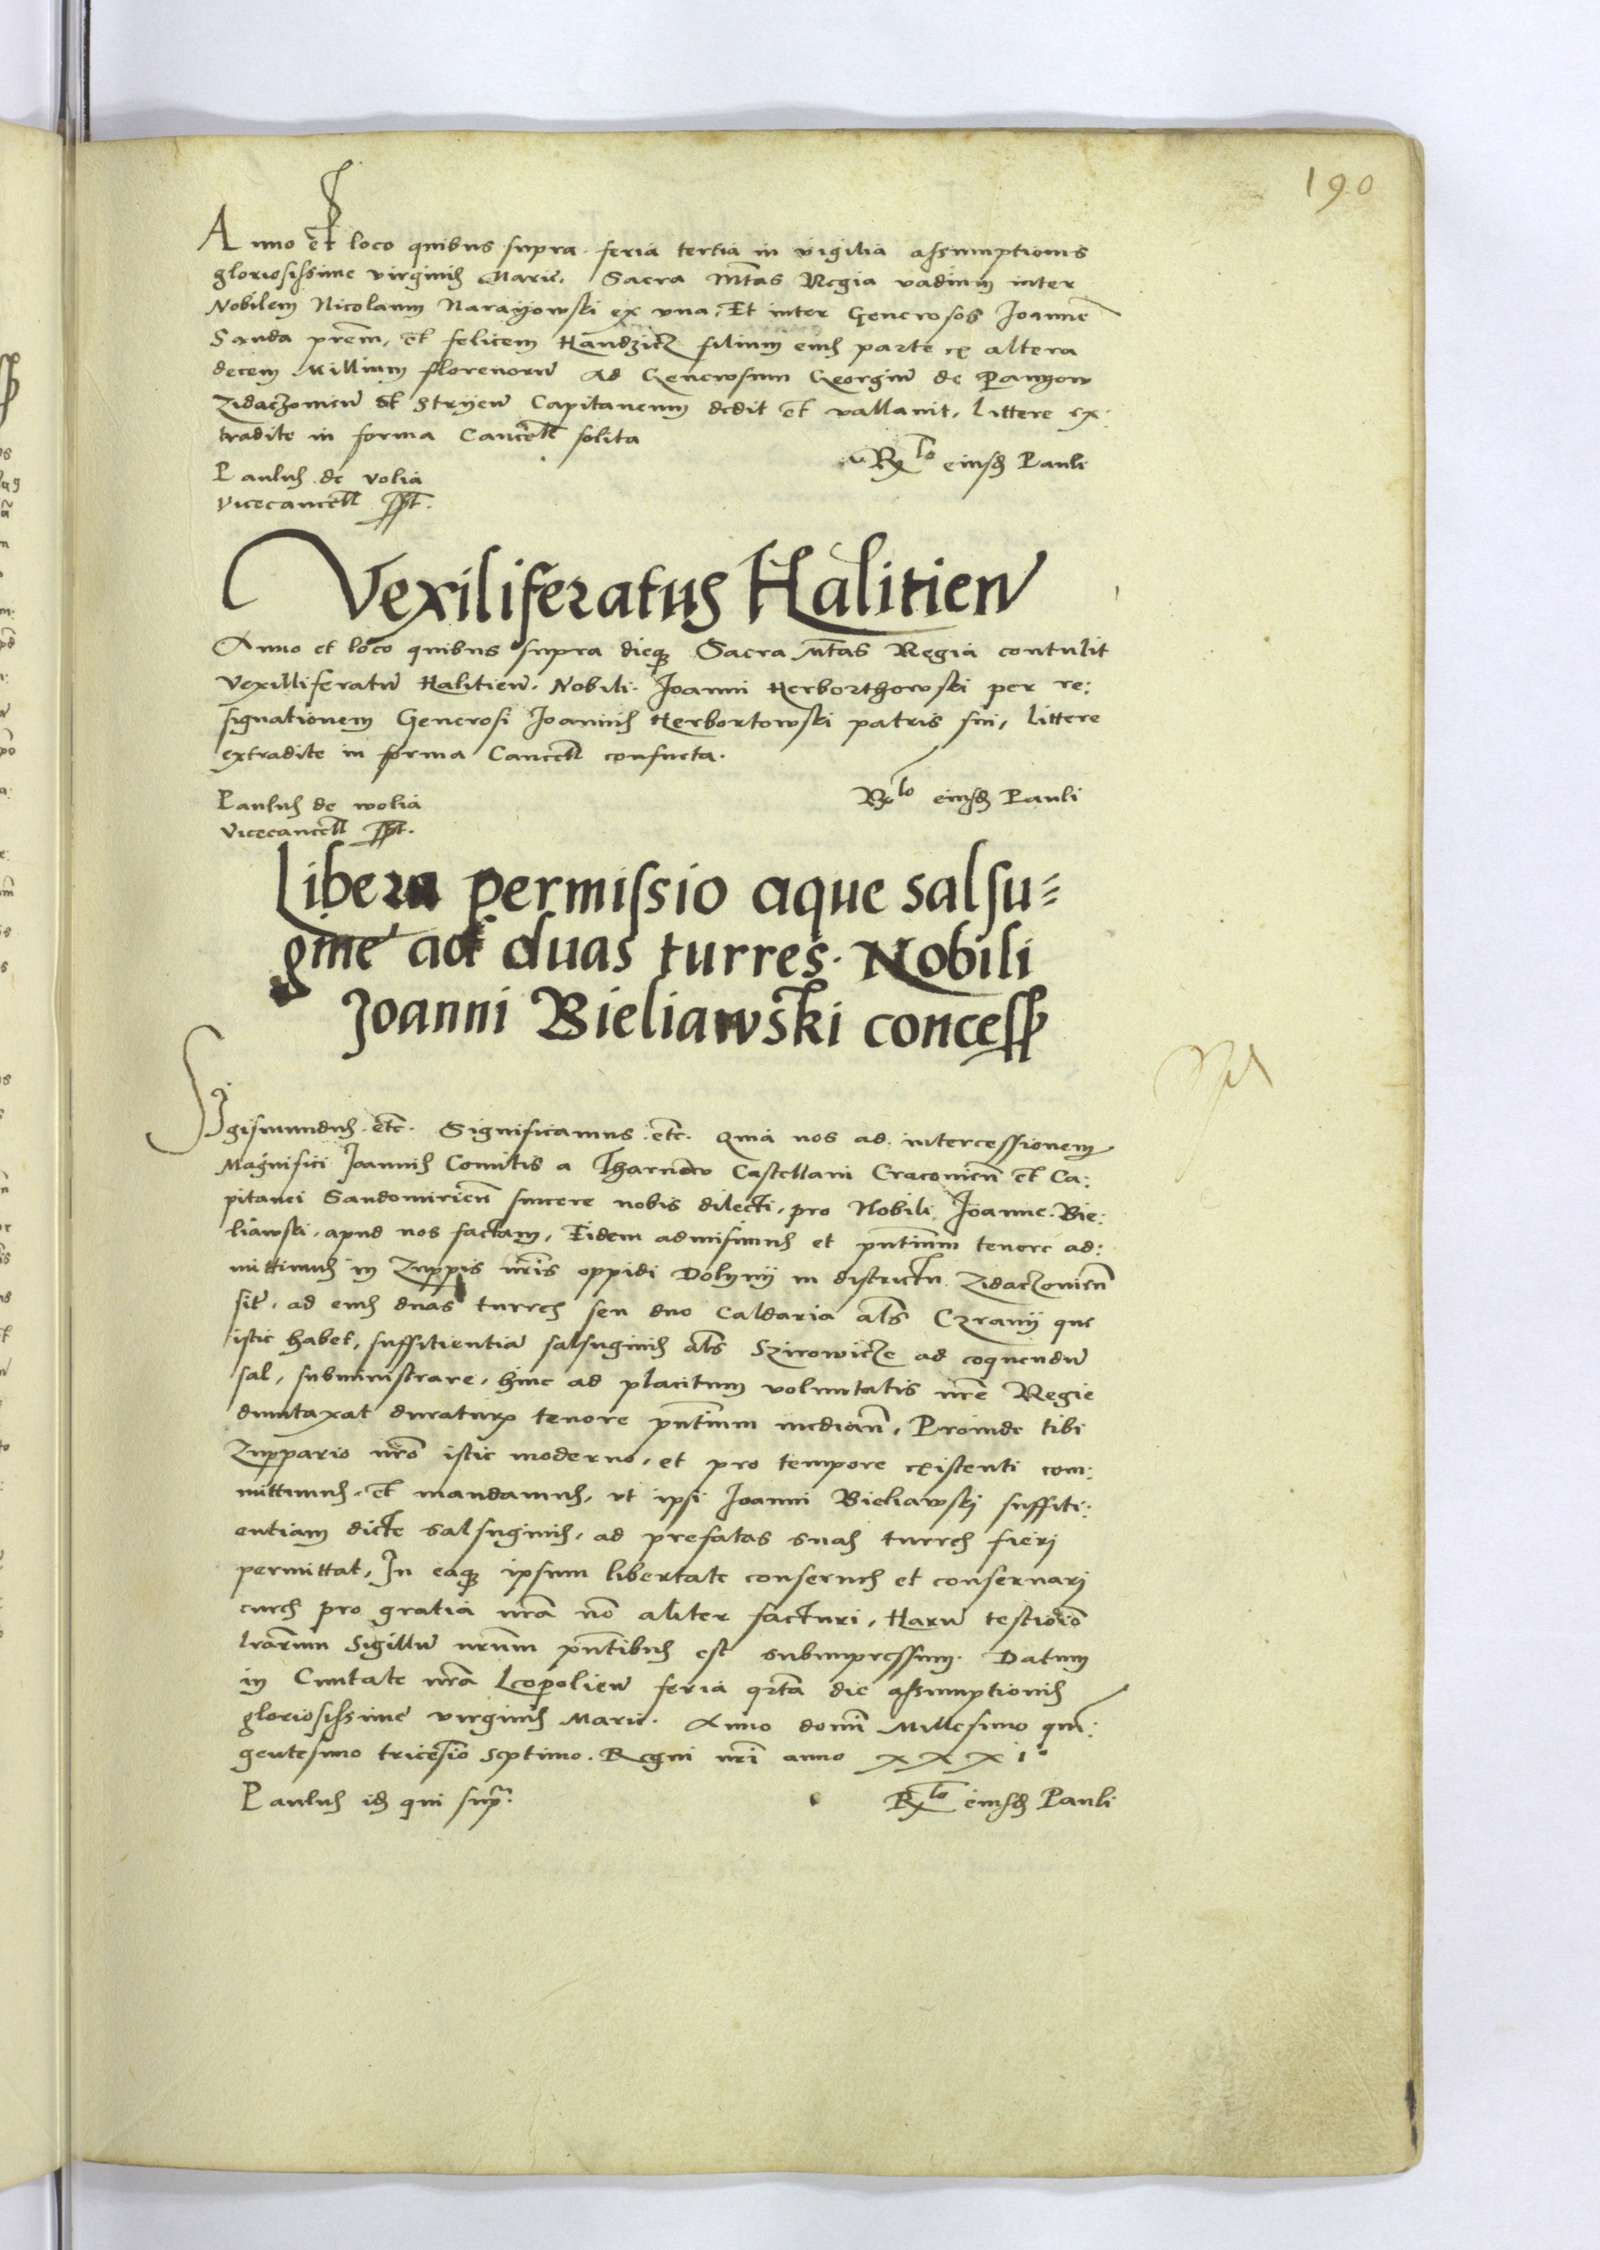 190
Anno et loco quibus supra feria tertia in vigilia assumptionis
gloriosissime virginis Marie. Sacra Mtas Regia vadium inter
Nobilem Nicolaum Narayowski ex vna, Et inter Generosos Joanne
prem, et felicem filium eius parte ex altera
decem Millium florenoru Ad Generosum Georgiu de
Zidaczouien et Stryen Capitaneum dedit et vallauit, littere ex:
tradite in forma Cancell solita
Paulus de volia
vicecancell sst.
Rlo eiusd Pauli
Vexiliferatus Halitien
Anno et loco quibus supra dieq Sacra Mtas Regia contulit
vexilliferatu Halitien. Nobili. Joanni Herborthowski per re:
signationem Generosi Joannis Herbortowski patris sui, littere
extradite in forma Cancell consueta.
Paulus de wolia
vicecancell sst.
Rlo eiusd Pauli
Libera permissio aque salsu=
gine ad duas turres. Nobili
Joanni Bieliawski concess
Sigismundus. etc. Significamus. etc. Quia nos ad intercessionem
Magnifici Joannis Comitis a Tharnow Castellani Cracouien et Ca:
pitanei Sandomirien sincere nobis dilecti, pro Nobili Joanne. Bie:
liawski. apud nos factam, Eidem admisimus et pntium tenore ad:
mittimus in Zuppis nris oppidi Dolynij in districtu Zidaczouien
sit, ad eius duas turres seu duo caldaria als Czranij que
istic habet, suffitientia salsuginis als Szirowicze ad coquendu
sal, subministrare, hinc ad placitum voluntatis nre Regie
duntaxat duratur tenore pntium median, Proinde tibi
Zuppario nro istic moderno, et pro tempore existenti com:
mittimus. et mandamus, vt ipsi Joanni Bieliawski suffiti:
entiam dicte salsuginis, ad prefatas suas turres fieri
permittat, In eaq ipsum libertate conserues et conseruari
cures pro gratia nra no aliter facturi, Haru testioio
lrarum Sigillu nrum pntibus est subimpressum. Datum
in Ciuitate nra Leopolien feria qrta die assumptionis
gloriosissime virginis Marie. Anno domi Millesimo qui:
gentesimo tricesio septimo. Regni nri anno xxxi°
Paulus id qui sup.
Rlo eiusd Pauli